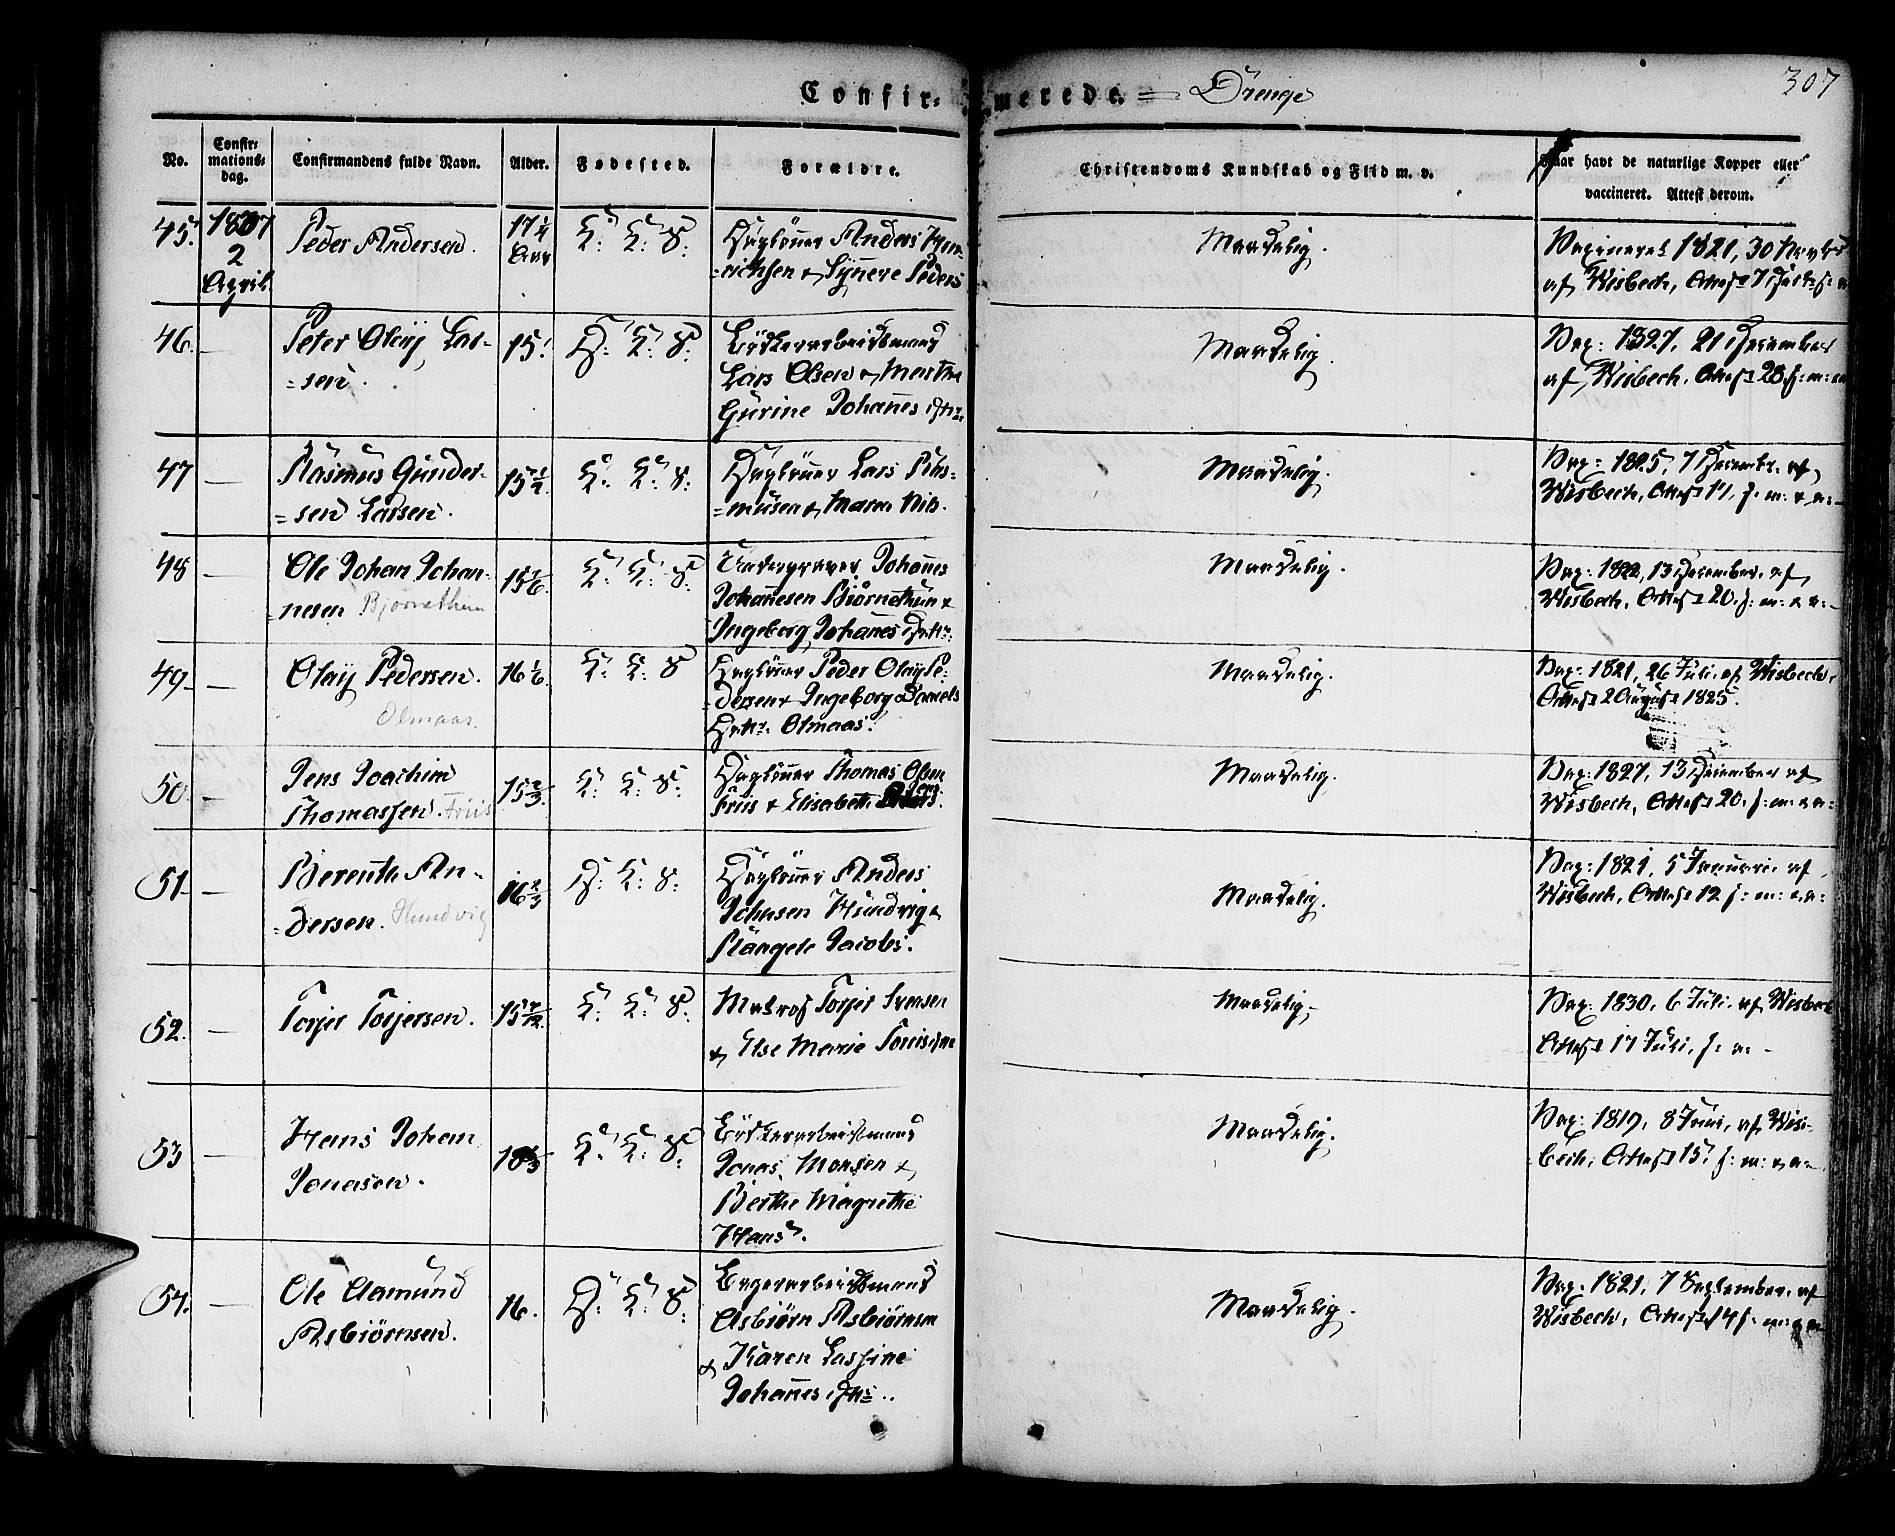 307
Confirmerede. = Drenge
No.
Confir-
mations-
dag.
Confirmandens fulde Navn.
Alder.
Fødested.
Forældre.
Christendoms Kundskab og Flid m. v.
Naar havt de naturlige Kopper eller
vaccineret. Attest derom.
45.
1837
2
April.
Peder Andersen.
17 1/4
Aar
K: K: S:
Dagløner Anders
& Synnere Peders
Maadelig.
Vaxineret 1821, 30
af Wisbech, Attest 7
46.
—
Peter Olay Lar-
=sen.
15.
D: K: S:
Lars Olsen & Martha
Gurine Johannes
Maadelig.
Vax: 1827, 21 December
af Wisbech, Attest 28. s: m:
47
—
Rasmus Gunder-
=sen Larsen.
15 1/2.
K: K: S:
Dagløner Lars Ras-
=musen & Maren Nils.
Maadelig.
Vax: 1825, 7 Decembr. af
Wisbech, Attest 17. s: m: & a:
48
—
Ole Johan Johan-
=nesen Bjørnethun
15 1/6.
K: K: S:
Johannes
Johannesen Biørnethun &
Ingeborg Johannes Datr:
Maadelig.
Vax: 1822, 13 December. af
Wisbech, Attest 20. s: m: & a:
49.
—
Olaij Pedersen.
Olmaas.
16 1/6.
K: K: S:
Dagløner Peder Olay Pe-
=dersen & Ingeborg Daniels
Datr: Olmaas.
Maadelig.
Vax: 1821, 26 Juli. af Wisbech.
Attest 2 August 1825.
50.
—
Jens Joachim
Thomassen. Friis
15 2/3.
K: K: S:
Dagløner Thomas Olsen
Friis & Elisabeth
Maadelig.
Vax: 1827, 13 December af
Wisbech, Attest 20. s: m: & a:
51.
—
Berenth An-
=dersen. Hundvig
16 2/3
D: K: S:
Dagløner Anders
Johnsen Hundvig &
Rangele Jacobs.
Maadelig.
Vax: 1821, 5 Januari. af
Wisbech, Attest 12 s: m: & a:
52.
—
Torjer Torjersen.
15 7/12.
K: K: S:
Matros Torjer Svensen
& Else Marie
Maadelig.
Vax: 1830, 6 Juli. af Wisbech
Attest 17 Juli. s: a:
53
—
Hans Johan
Jonasen.
K: K: S:
Jonas Monsen &
Berthe Magrethe
Hans.
Maadelig.
Vax: 1819, 8 Juni, af Wis-
bech, Attest 15. s: m: & a:
54.
—
Ole Aamund
Asbiørnsen.
16.
D: K: S:
Asbiørn Asbiørnsen
& Karen Lassine
Johannes
Maadelig.
Vax: 1821, 7 September, af
Wisbech, Attest 14 s: m: & a: